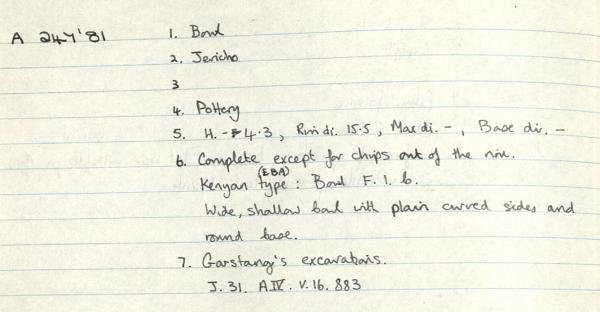 A 247'81
1. Bowl
2. Jericho
3
4. Pottery
5. H. - 4.3, Rim di. 15.5, Max di. -, Base dir. -
6. Complete except for chips out of the rim.
(EBA)
Kenyan type: Bowl F.1.b.
Wide, shallow bowl with plain curved sides and
round base.
7. Garstang's excavations.
J.31. A IV. V.16. 883